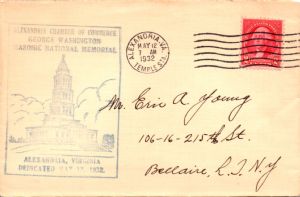 ALEXANDRIA CHAMBER OF COMMERCE
GEORGE WASHINGTON
MASONIC NATIONAL MEMORIAL
ALEXANDRIA, VIRGINIA
DEDICATED MAY 12, 1932.
ALEXANDRIA, VA.
MAY 12
1 AM
1932
TEMPLE STA.
Mr. Eric A Young
106-16-215th St.
Bellaire, L.I. N.Y